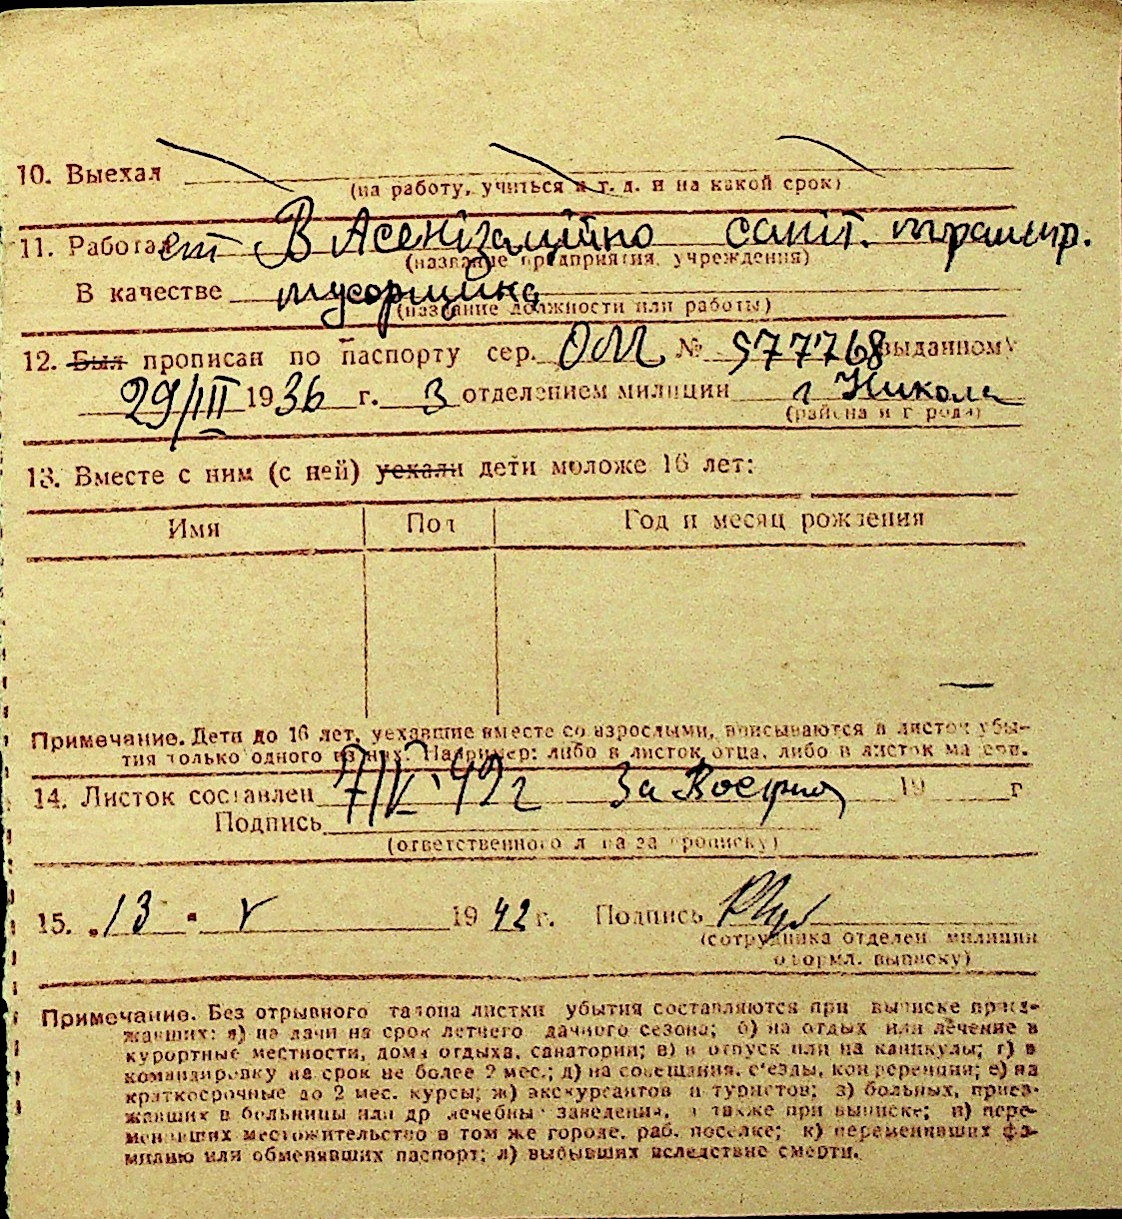 10. Выехал
(на работу, учиться и т. д. и на какой срок)
11. Работает В Асенізаційно саніт. транспр.
(название предприятия, учреждения)
В качестве мусорщика
(название должности или работы)
12. Был прописан по паспорту сер. ОМ № 577768 выданному
29/III 1936 г. 3 отделением милиции г Никола
(района и города)
13. Вместе с ним (с ней) уехали дети моложе 16 лет:
Имя Пол Год и месяц рождения
Примечание. Дети до 16 лет, уехавшие вместе со взрослыми, вписываются в листок убы-
тия только одного из них. Например: либо в листок отца, либо в листок матери.
14. Листок составлен 7/V 42 г За 19 г
Подпись
(ответственного лица за прописку)
15. „13 " V 1942 г. Подпись
(сотрудника отделен. милиции
оформл. выписку)
Примечание. Без отрывного талона листки убытия составляются при выписке приез-
жавших: а) на дачи на срок летнего дачного сезона; б) на отдых или лечение в
курортные местности, дома отдыха, санатории; в) в отпуск или на каникулы; г) в
командировку на срок не более 2 мес.; д) на совещания, с'езды, конференции; е) на
краткосрочные до 2 мес. курсы; ж) экскурсантов и туристов; з) больных, приез-
жавших в больницы или др. лечебные заведения, а также при выписке; и) пере-
менивших местожительство в том же городе, раб. поселке; к) переменивших фа-
милию или обменявших паспорт; л) выбывших вследствие смерти.